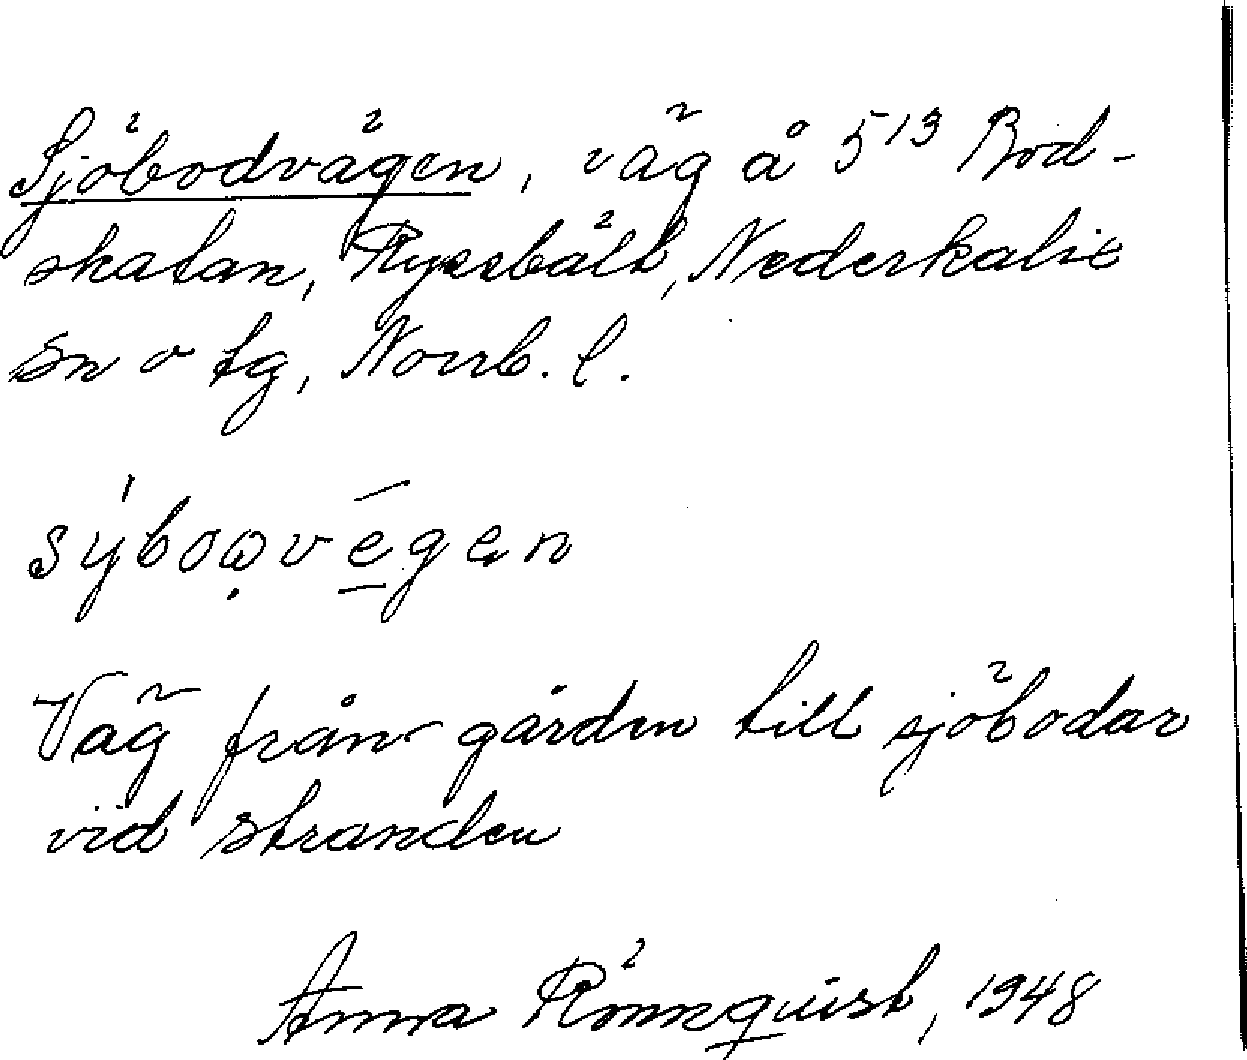 Sjöbodvägen, väg å 5¹³ Bod-
skatan, Ryssbält, Nederkalix
sn o tg, Norrb. l.
Väg från gården till sjöbodar
vid stranden
Anna Rönnquist, 1948